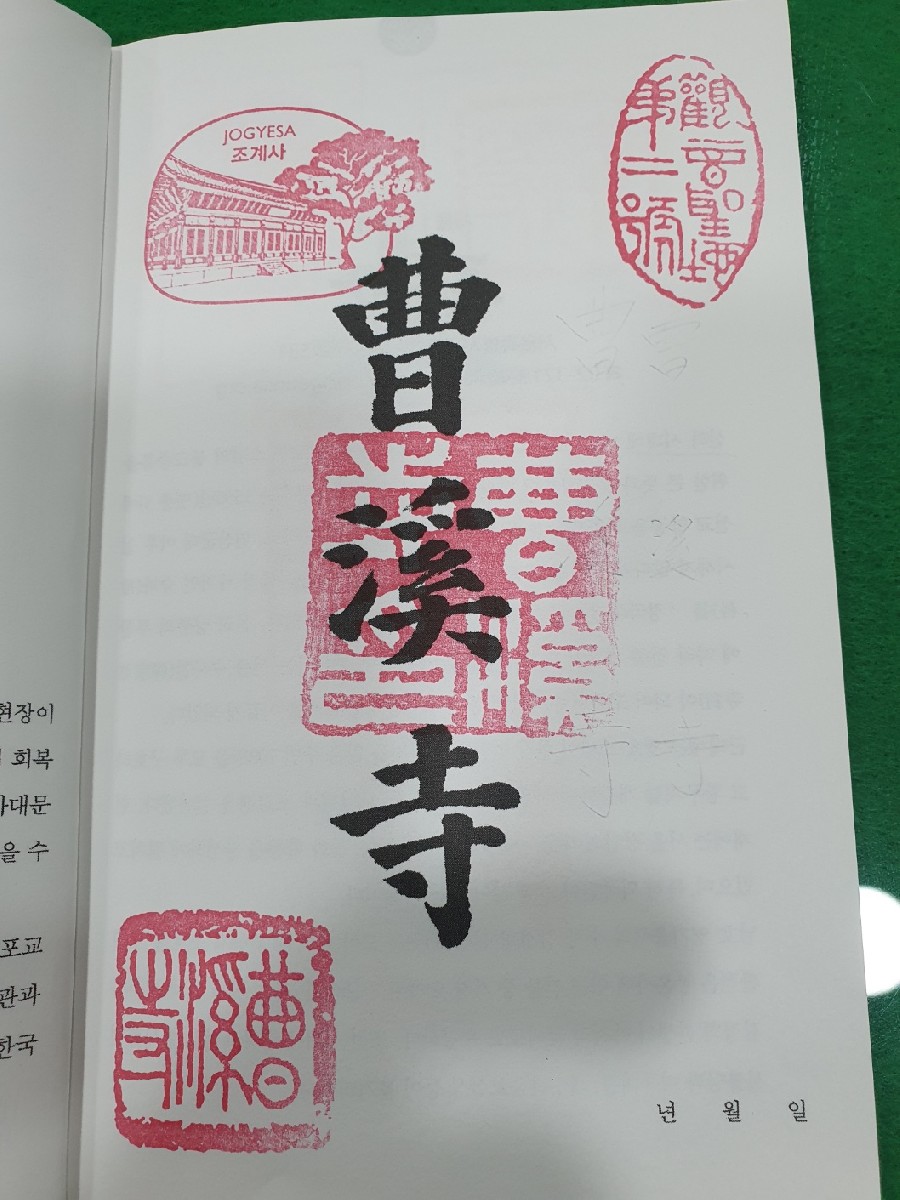 현장이
회복
대문
을 수
포교
관과
한국
JOGYESA
조계사
觀音聖地
第二號
曹
溪
寺
曹溪
曹溪寺
년 월 일